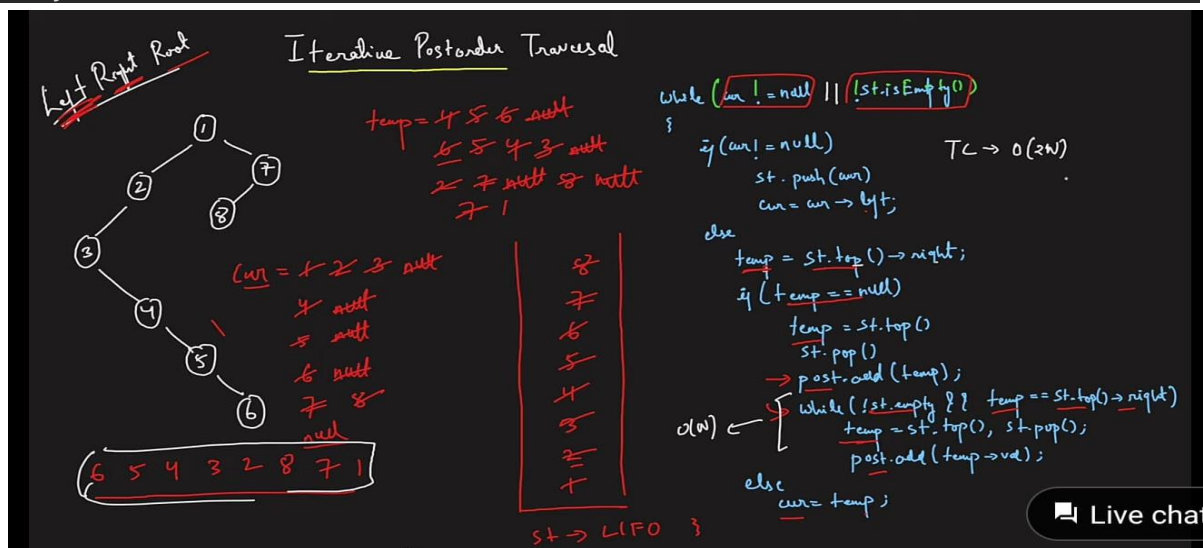 Iterative Postorder Traversal
Left Right Root
1
2
7
8
3
4
5
6
temp = 4 5 6 null
6 5 4 3 null
2 7 null 8 null
7 1
cur = 1 2 3 null
4 null
5 null
6 null
7 8
null
6 5 4 3 2 8 7 1
8
7
6
5
4
3
2
1
st → LIFO
while (cur != null || !st.isEmpty())
{
if (cur! = null)
st. push (cur)
cur = cur → left;
else
temp = st.top() → right;
if (temp == null)
temp = st.top()
st.pop()
→ post.add (temp);
while (!st.empty && temp == st.top() → right)
temp = st.top(), st.pop();
post.add (temp → val);
else
cur = temp;
}
O(N) ←
TC → O(2N)
Live chat